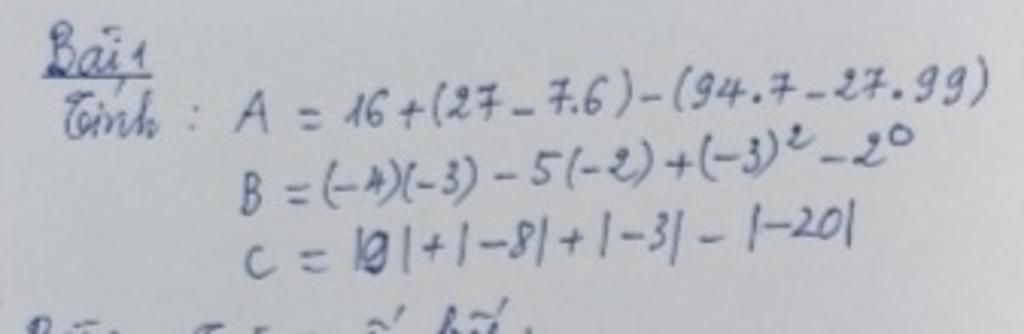 Bài 1
Tính : A = 16 + (27 - 7.6) - (94.7 - 27.99)
B = (-4)(-3) - 5(-2) + (-3)² - 2⁰
C = |9| + |-8| + |-3| - |-20|